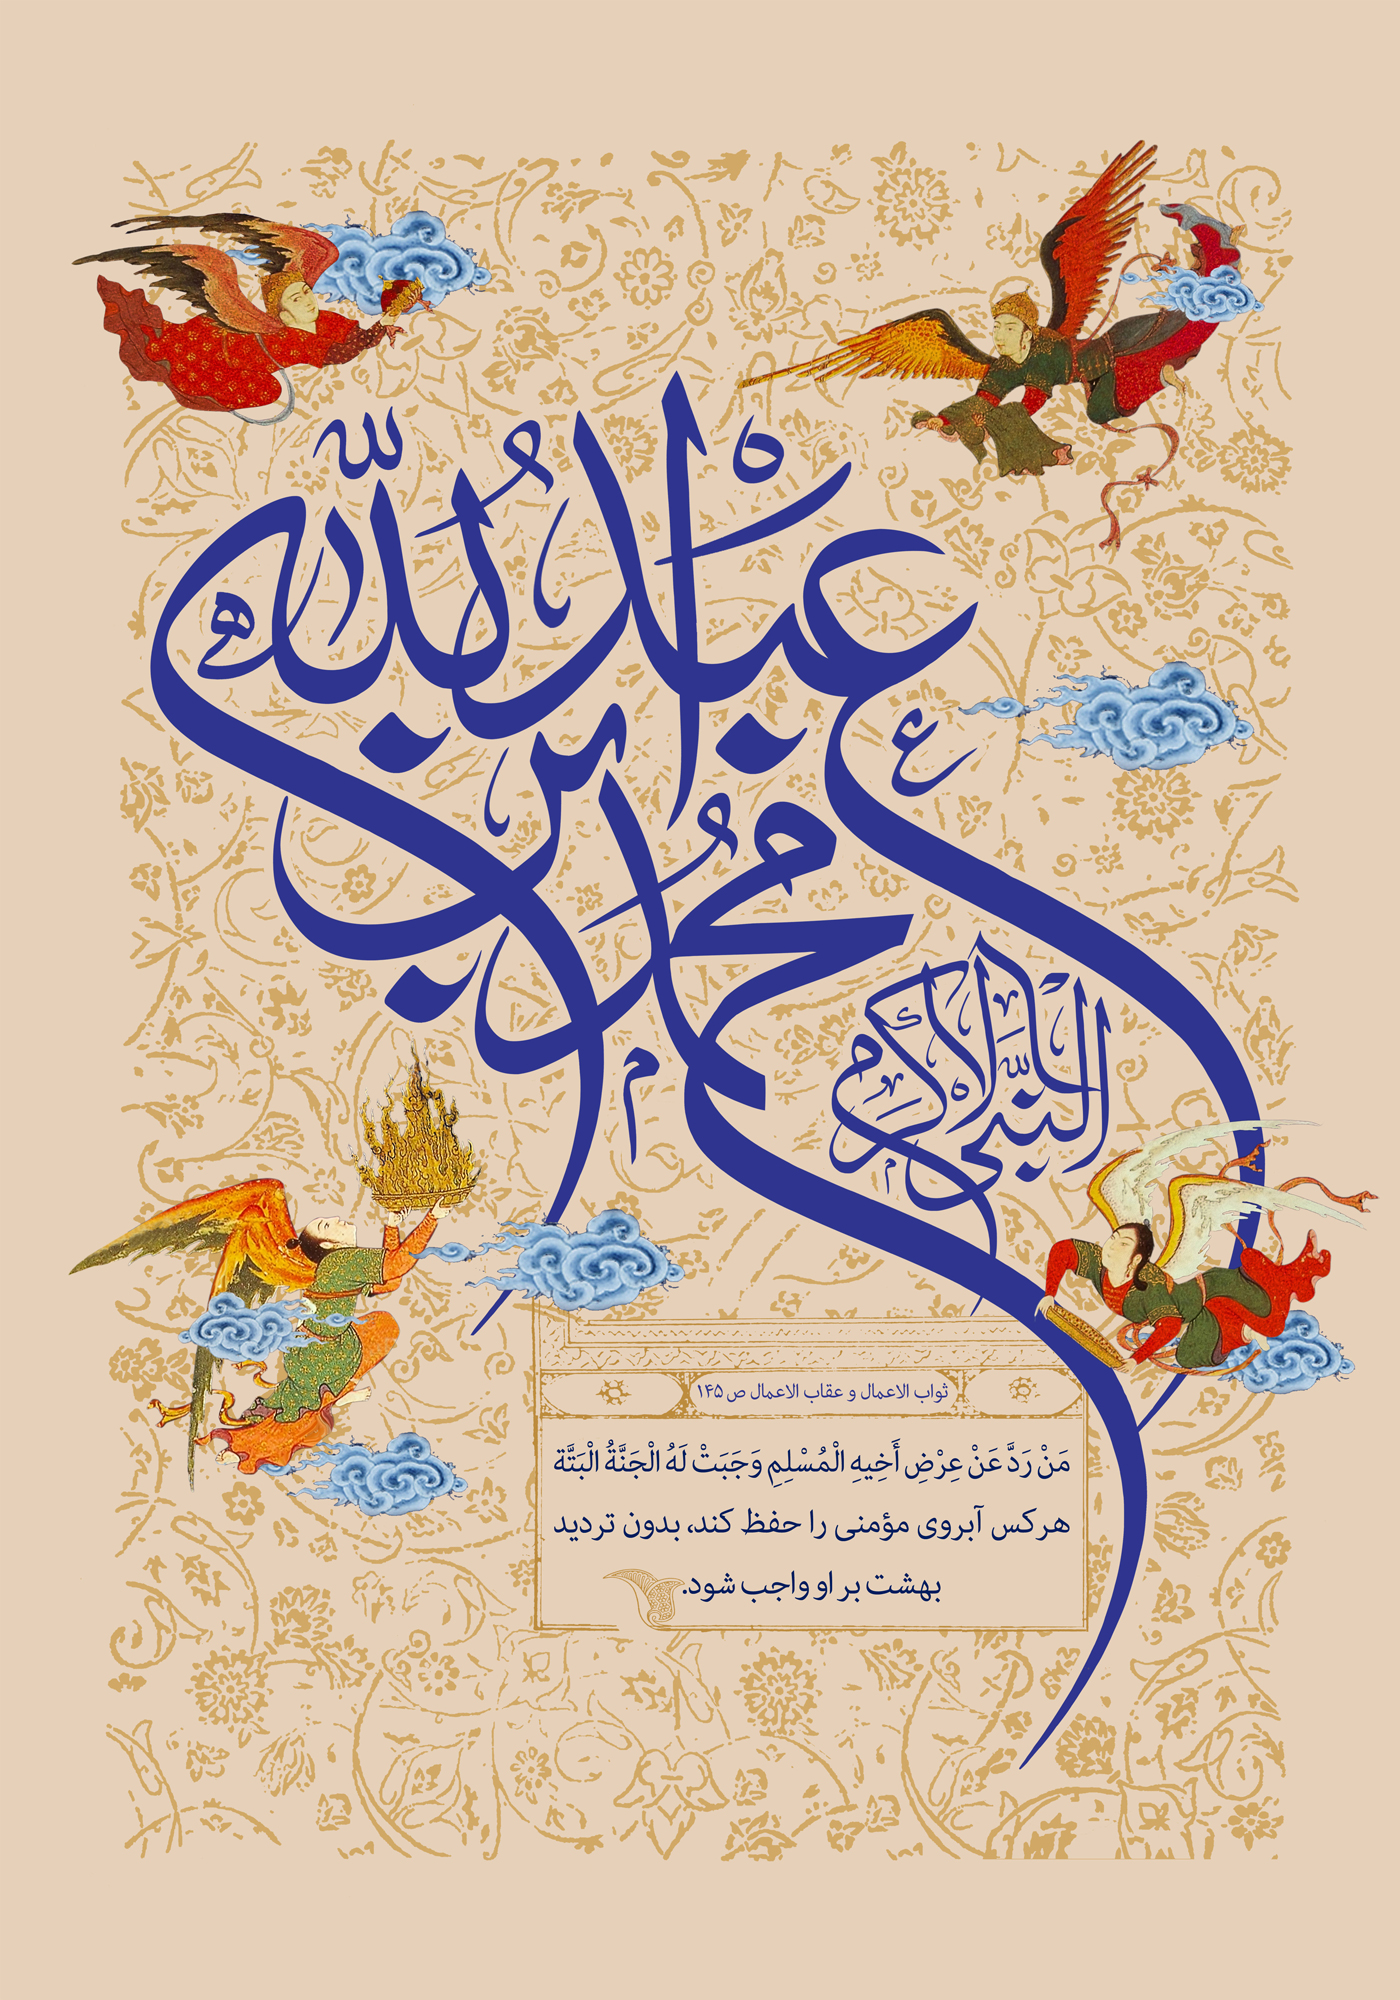 عبدالله
ابن
محمد
النبی الاکرم
ثواب الاعمال و عقاب الاعمال ص ۱۴۵
مَنْ رَدَّ عَنْ عِرْضِ أَخِیهِ الْمُسْلِمِ وَجَبَتْ لَهُ الْجَنَّةُ الْبَتَّة
هرکس آبروی مؤمنی را حفظ کند، بدون تردید
بهشت بر او واجب شود.